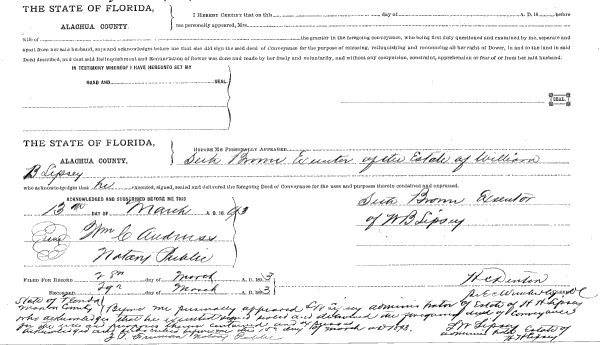 THE STATE OF FLORIDA,
ALACHUA COUNTY.
I HEREBY CERTIFY that on this day of A. D. 18 before
me personally appeared, Mrs.
wife of the grantor in the foregoing conveyance, who being first duly questioned and examined by me, separate and
apart from her said husband, says and acknowledges before me that she did sign the said deed of Conveyance for the purpose of releasing, relinquishing and renouncing all her right of Dower, in and to the land in said
Deed described, and that said Relinquishment and Renunciation of Dower was done and made by her freely and voluntarily, and without any compulsion, constraint, apprehension or fear of or from her said husband.
IN TESTIMONY WHEREOF I HAVE HEREUNTO SET MY
HAND AND SEAL.
SEAL.
THE STATE OF FLORIDA,
ALACHUA COUNTY.
BEFORE ME PERSONALLY APPEARED
Brown Executor of the Estate of William
B Lipsey
who acknowledges that he executed, signed, sealed and delivered the foregoing Deed of Conveyance for the uses and purposes therein contained and expressed.
ACKNOWLEDGED AND SUBSCRIBED BEFORE ME THIS
13 DAY OF March A. D. 18
Brown Executor
of W B Lipsey
Wm C Andruss
Notary Public
FILED FOR RECORD day of March A. D. 18
RECORDED day of March A. D. 18
State of Florida
Marion County
Before me personally appeared administrator of Estate of H H Lipsey
who acknowledges that he executed signed sealed and delivered the foregoing deed of conveyance
for the uses and purposes therein contained and expressed
acknowledged and subscribed before me this day of March
Notary Public
Lipsey
Estate of
H H Lipsey